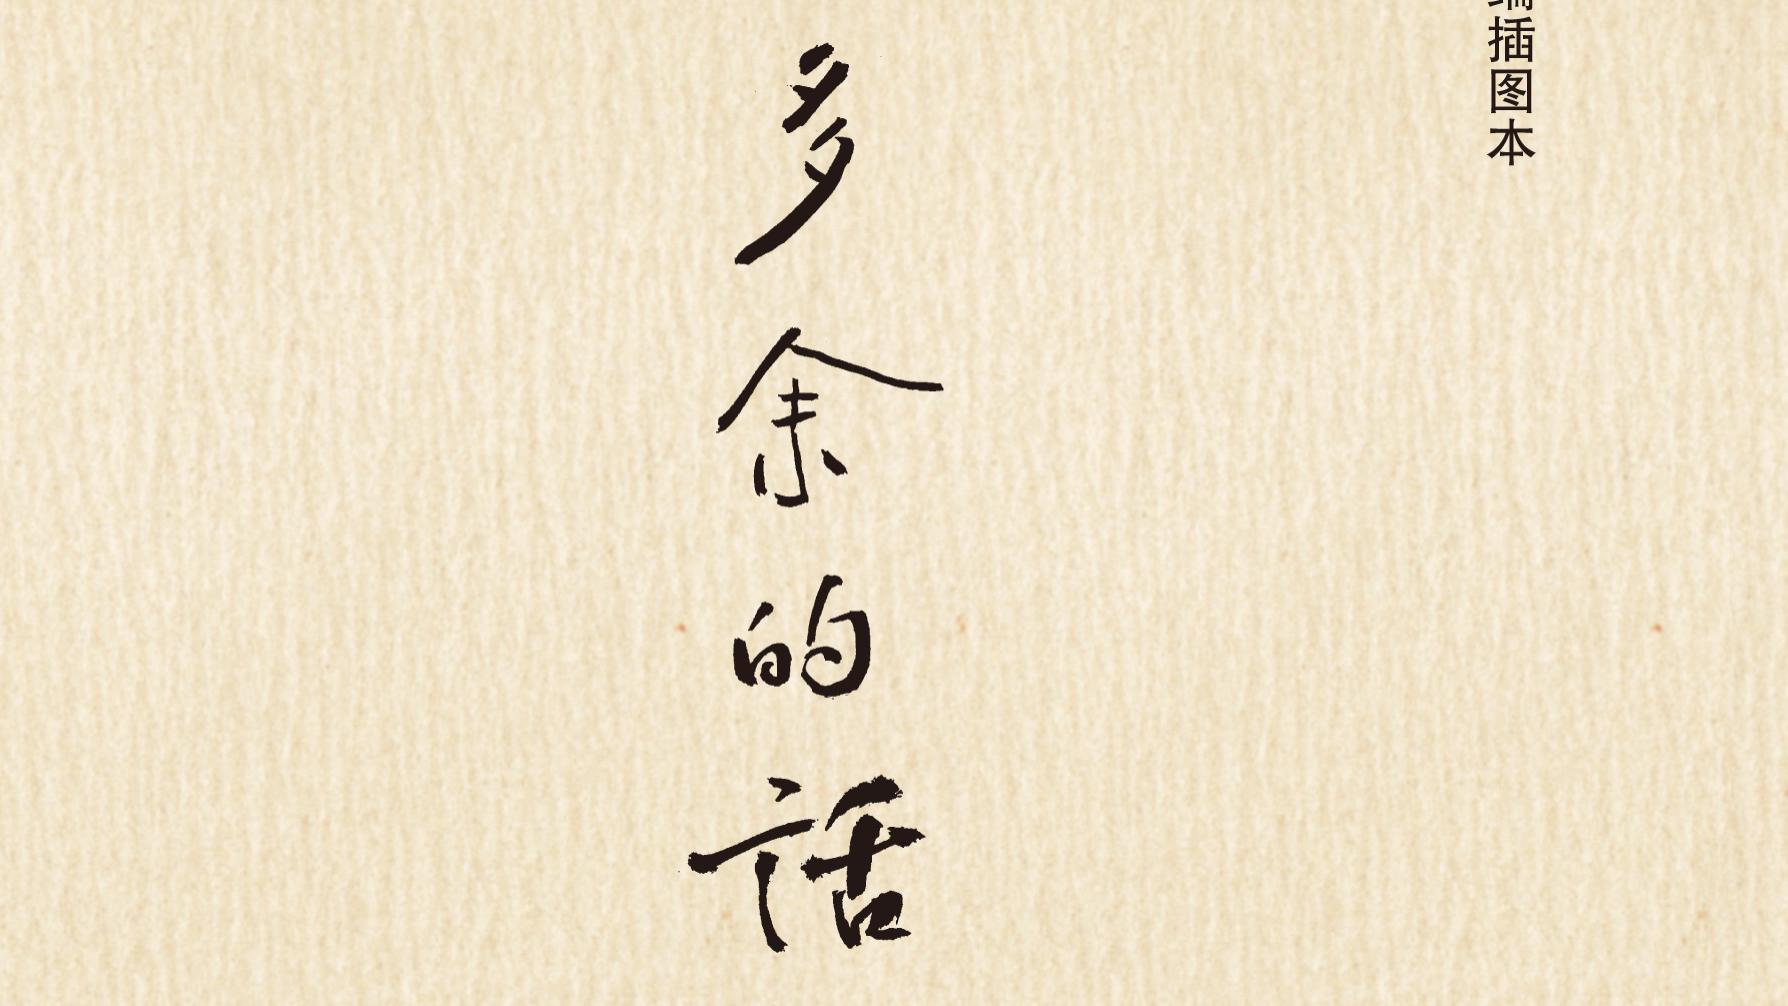 插图本
多余的话